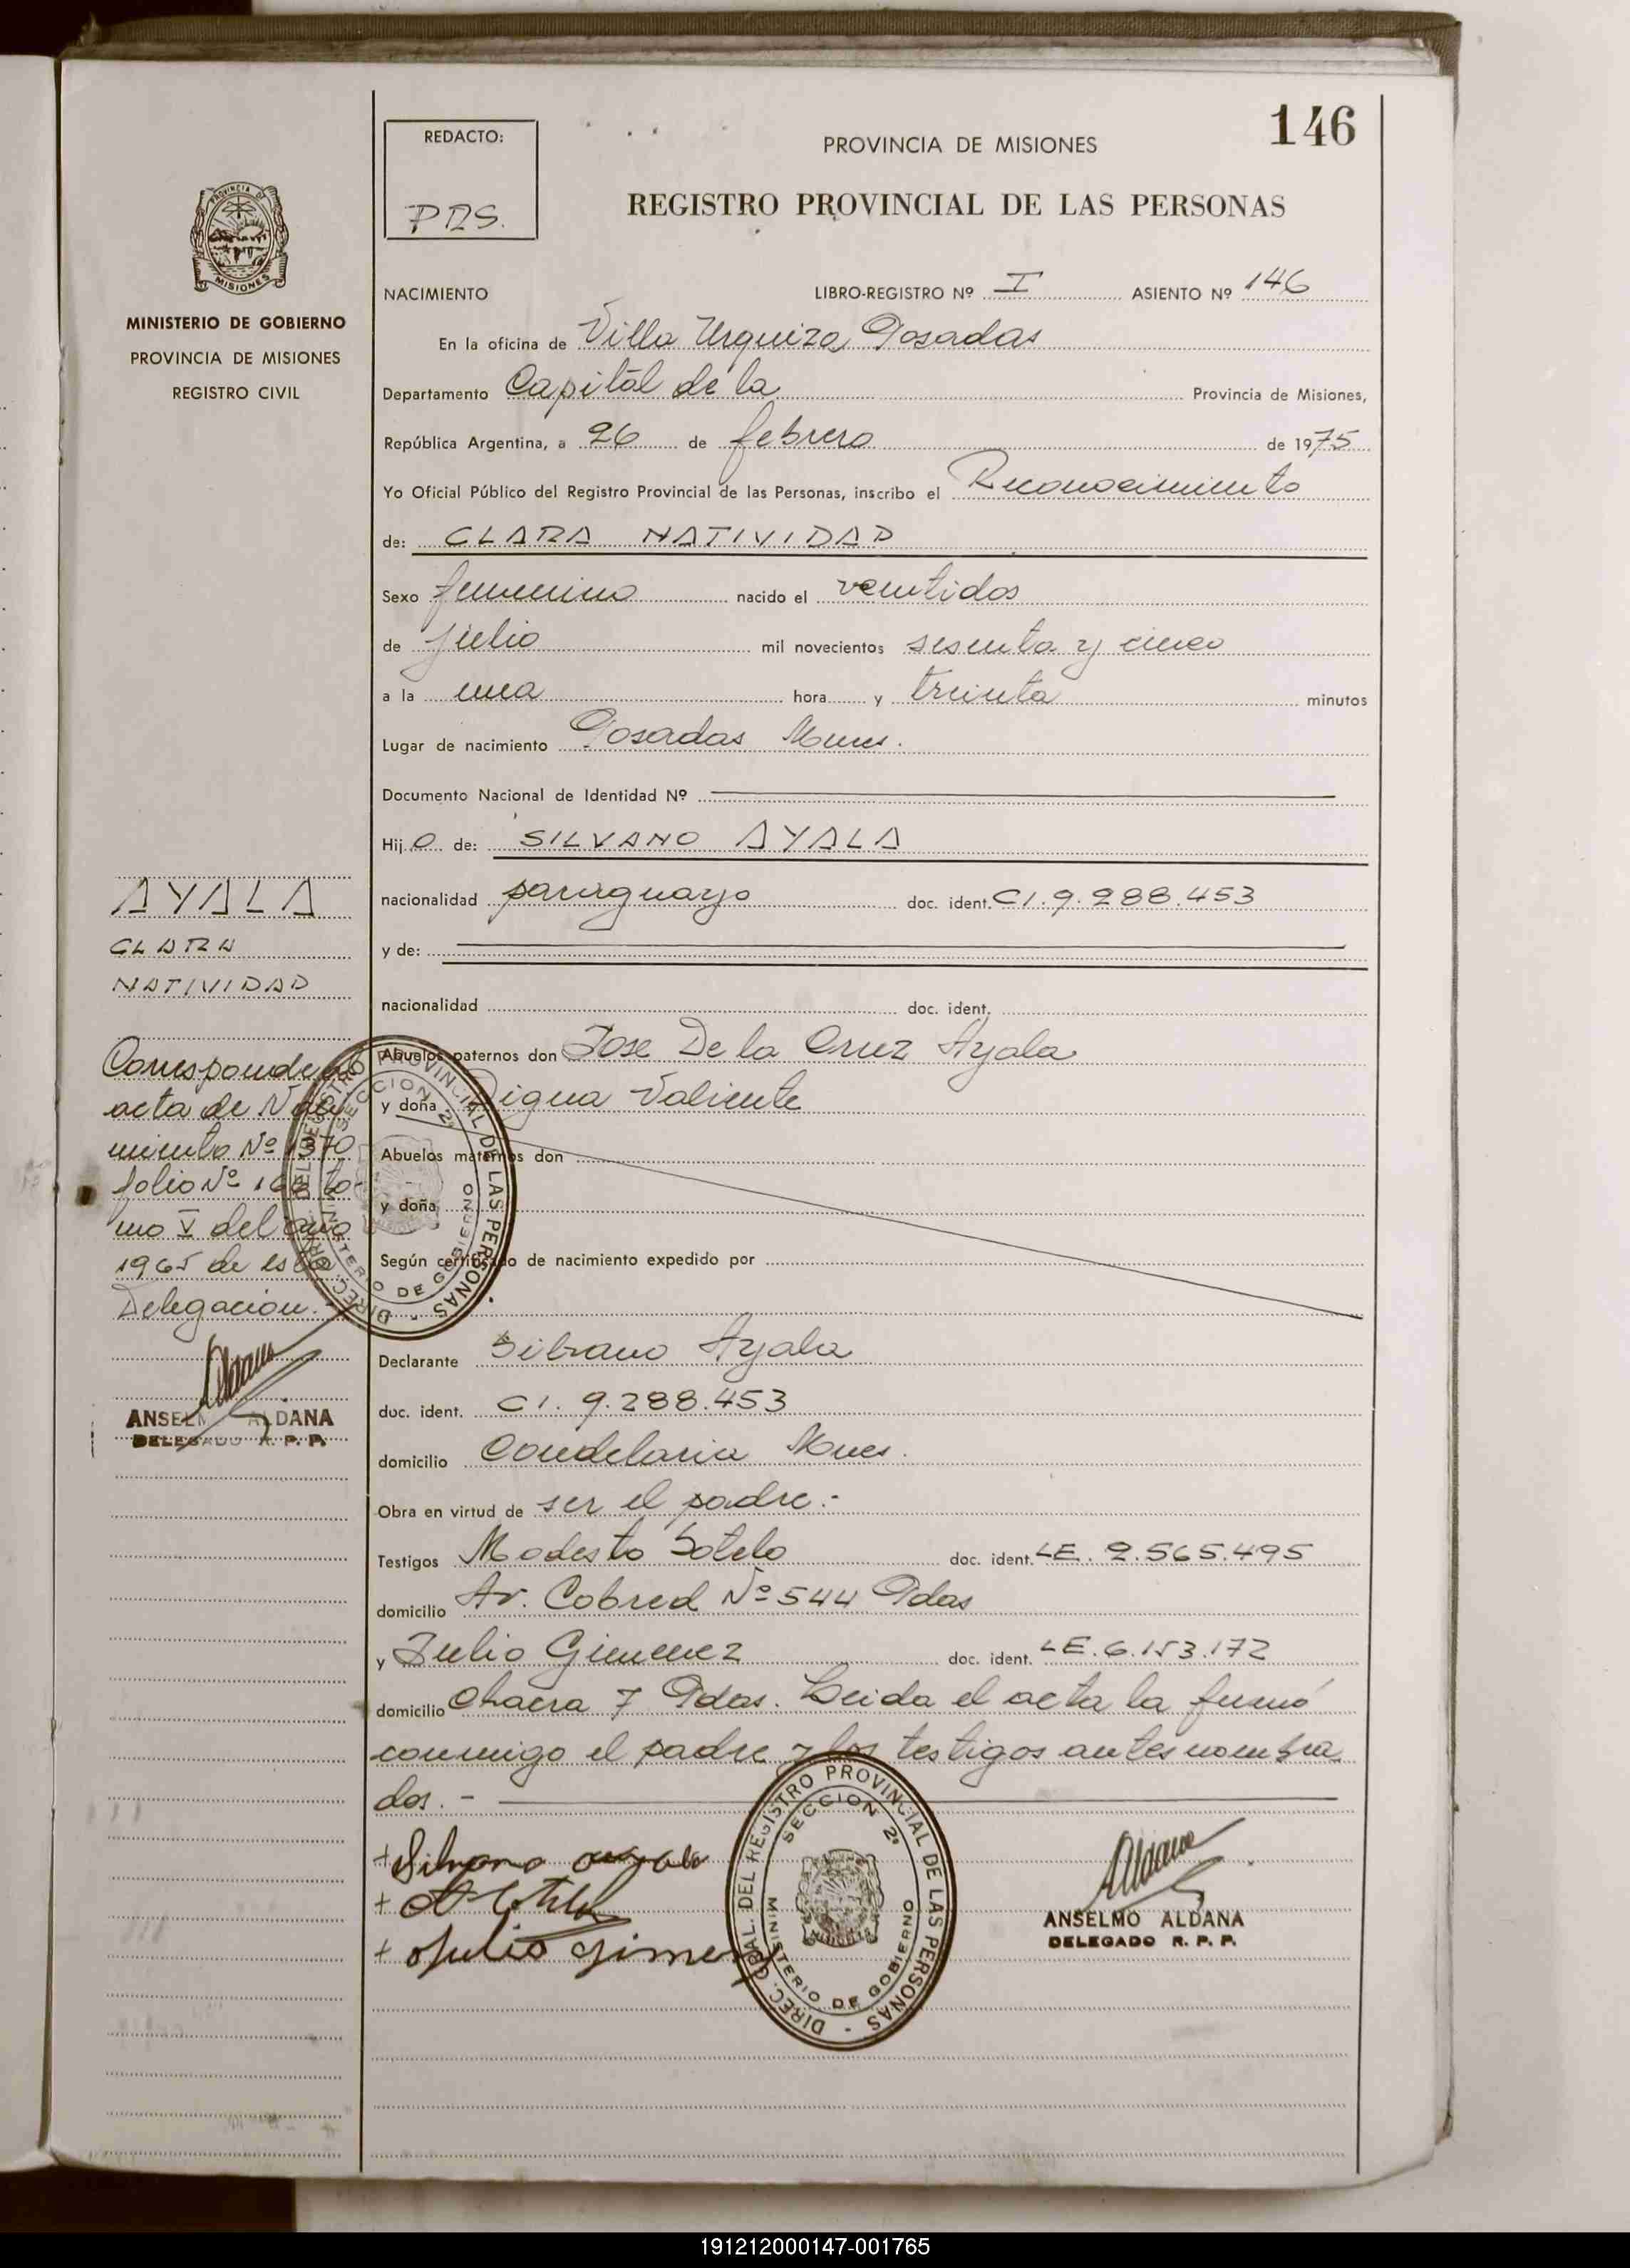 146
REDACTO:
PRS.
PROVINCIA DE MISIONES
REGISTRO PROVINCIAL DE LAS PERSONAS
PROVINCIA DE
MISIONES
MINISTERIO DE GOBIERNO
PROVINCIA DE MISIONES
REGISTRO CIVIL
NACIMIENTO LIBRO-REGISTRO Nº I ASIENTO Nº 146
En la oficina de Villa Urquiza Posadas
Departamento Capital de la Provincia de Misiones,
República Argentina, a 26 de febrero de 1975
Yo Oficial Público del Registro Provincial de las Personas, inscribo el Reconocimiento
de: CLARA NATIVIDAD
Sexo femenino nacido el veintidos
de julio mil novecientos sesenta y cinco
a la una hora y treinta minutos
Lugar de nacimiento Posadas Mnes.
Documento Nacional de Identidad Nº
Hij O de: SILVANO AYALA
nacionalidad paraguayo doc. ident. CI. 9.288.453
y de:
nacionalidad doc. ident.
Abuelos paternos don Jose De la Cruz Ayala
y doña Digna Valiente
Abuelos maternos don
y doña
Según certificado de nacimiento expedido por
Declarante Silvano Ayala
doc. ident. CI. 9.288.453
domicilio Candelaria Mnes.
Obra en virtud de ser el padre.-
Testigos Modesto Sotelo doc. ident. LE. 2.565.495
domicilio Av. Cobred Nº 544 Pdas
y Julio Gimenez doc. ident. LE. 6.153.172
domicilio Chacra 7 Pdas. Leida el acta la firmó
conmigo el padre y los testigos antes nombra
dos.-
AYALA
CLARA
NATIVIDAD
Corresponde al
acta de Naci
miento Nº 1370
folio Nº 166 to-
mo V del año
1965 de esta
Delegacion.-
Aldana
ANSELMO ALDANA
DELEGADO R. P. P.
DIREC. GRAL. DEL REGISTRO PROVINCIAL DE LAS PERSONAS -
SECCION 2ª
MINISTERIO DE GOBIERNO
+ Silvano ayala
+ Julio Gimenez
DIREC. GRAL. DEL REGISTRO PROVINCIAL DE LAS PERSONAS -
SECCION 2ª
MINISTERIO DE GOBIERNO
Aldana
ANSELMO ALDANA
DELEGADO R. P. P.
191212000147-001765